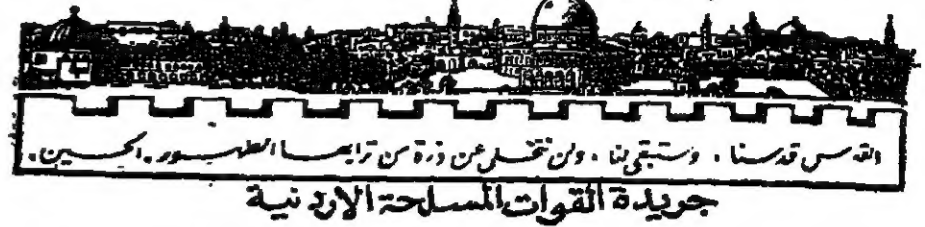 القدس قدسنا ، وستبقى لنا ، ولن نتخلى عن ذرة من ترابها الطهور .. الحسين .
جريدة القوات المسلحة الاردنية